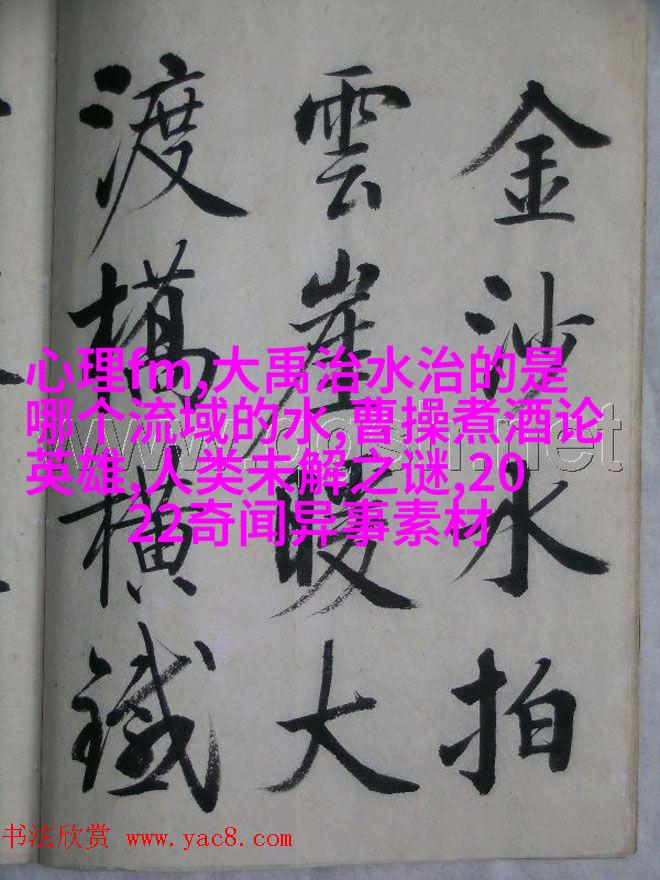 金沙水拍
雲崖暖大
渡橋橫鐵
心理fm,大禹治水治的是
哪个流域的水,曹操煮酒论
英雄,人类未解之谜,20
22奇闻异事素材
书法欣赏 www.yac8.com